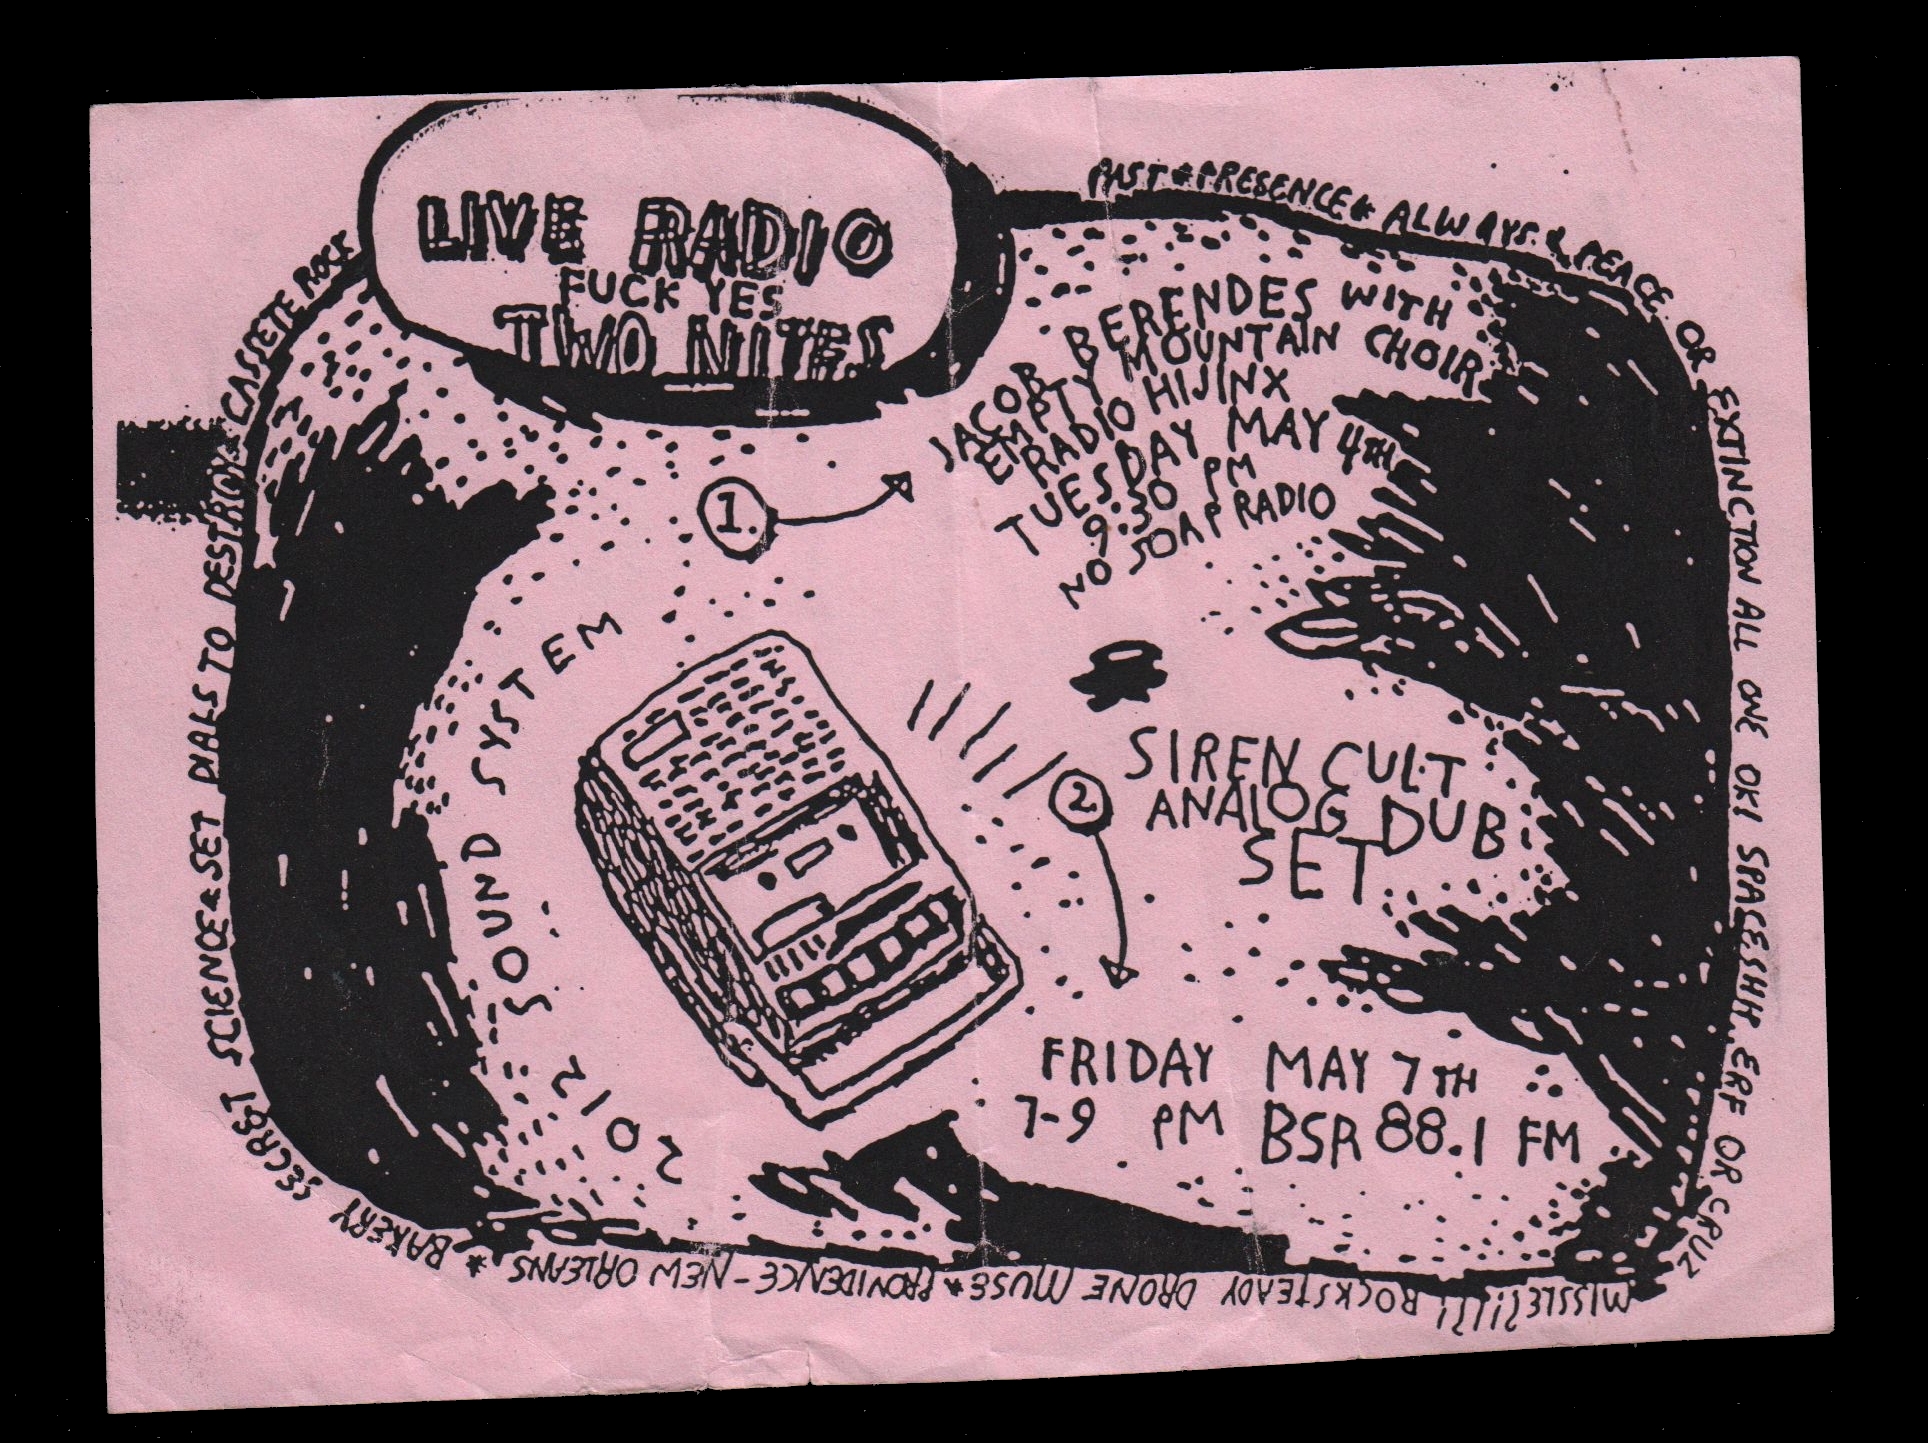 LIVE RADIO
FUCK YES
TWO NITES
PAST * PRESENCE * ALWAYS. & PEACE. OR EXTINCTION ALL ONE OK! SPACESHH.. ERF OR CRUZ
MISSLES!?!?! ROCKSTEADY DRONE MUSE * PROVIDENCE - NEW ORLEANS, * BAKERY SECRET SCIENCE & SET DIALS TO DESTROY & CASSETE ROCK
1.
JACOB BERENDES WITH
EMPTY MOUNTAIN CHOIR
RADIO HIJINX
TUESDAY MAY 4TH
9:30 PM
NO SOAP RADIO
2012 SOUND SYSTEM
2.
SIREN CULT
ANALOG DUB
SET
FRIDAY MAY 7TH
7-9 PM BSR 88.1 FM